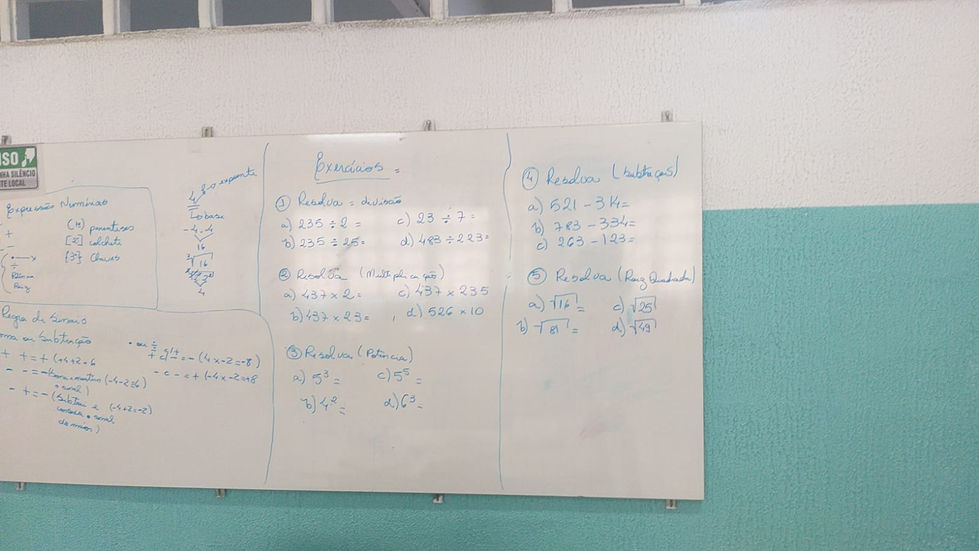 ISO
NHA SILÊNCIO
TE LOCAL
Expressão Numéricas
+ (4) parenteses
- [3] colchete
{3} Chaves
÷
Raiz
4² → expoente
↳ base
4.4
16
²√16
4
Regra de Sinais
ou Subtração
+ + = + (+4+2=6
- - = - (-4-2=6)
- + = - (Subtrai e (-4+2=-2)
- ou ÷
+ c/ - = - (4x-2=-8)
- c - = + (-4x-2=+8
Exercícios =
① Resolva = divisão
a) 235 ÷ 2 = c) 23 ÷ 7 =
b) 235 ÷ 25 = d) 483 ÷ 223 =
② Resolva (Multiplicação)
a) 437 x 2 = c) 437 x 235
b) 437 x 23 = d) 526 x 10
③ Resolva (Potência)
a) 5³ = c) 5⁵ =
b) 4² = d) 6³ =
④ Resolva (Subtração)
a) 521 - 314=
b) 783 - 334=
c) 263 - 123=
⑤ Resolva (Raiz Quadrada)
a) √16 = c) √25
b) √81 = d) √49